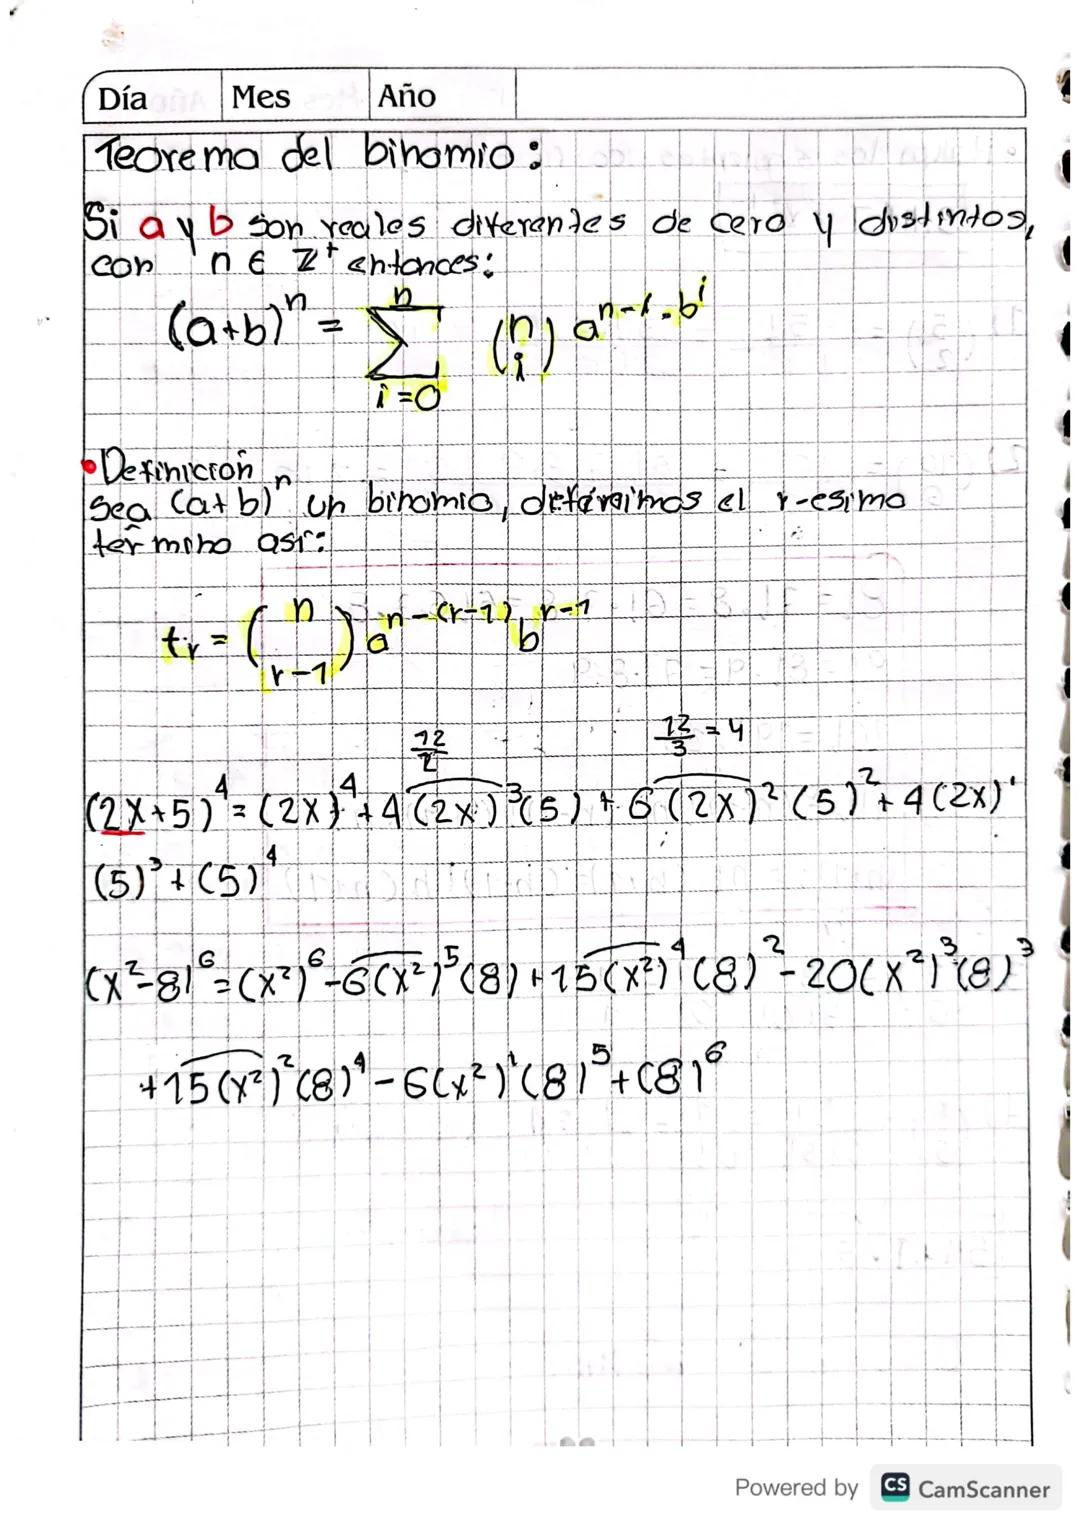 Día Mes Año
Teorema del binomio:
Si a y b son reales diferentes de cero y distintos,
con n ∈ Z⁺ entonces:
(a+b)ⁿ = Σ (n i) aⁿ⁻ⁱ · bⁱ
n
i=0
• Definición
Sea (a+b)ⁿ un binomio, el r-esimo
término así:
tᵣ = (n r-1) aⁿ⁻⁽ʳ⁻¹⁾ bʳ⁻¹
12/2 12/3 = 4
(2x+5)⁴ = (2x)⁴ + 4(2x)³(5) + 6(2x)²(5)² + 4(2x)¹
(5)³ + (5)⁴
(x²-8)⁶ = (x²)⁶ - 6(x²)⁵(8) + 15(x²)⁴(8)² - 20(x²)³(8)³
+15(x²)²(8)⁴ - 6(x²)¹(8)⁵ + (8)⁶
Powered by CS CamScanner